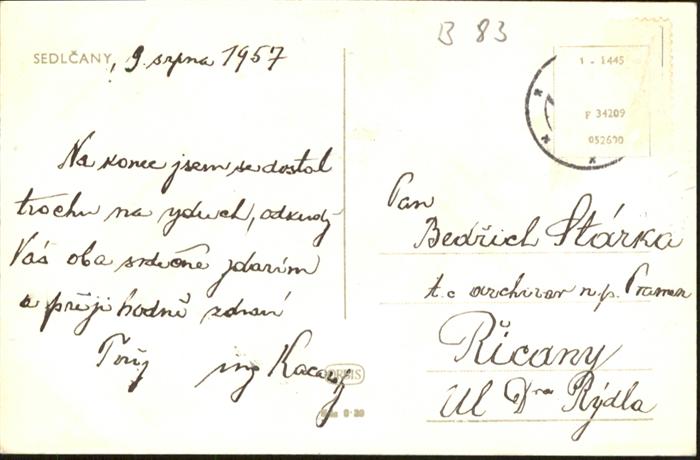 B 83
SEDLČANY, 9. srpna 1957
1 - 1445
F 34209
052600
Na konec jsem se dostal
trochu na vzduch, odkudž
Vás oba srdečně zdravím
a přeji hodně zdraví
ing
ORBIS
Pan
Bedřich Stárka
t.č. archivar n.p. Pramen
Říčany
Ul Dra Rýdla